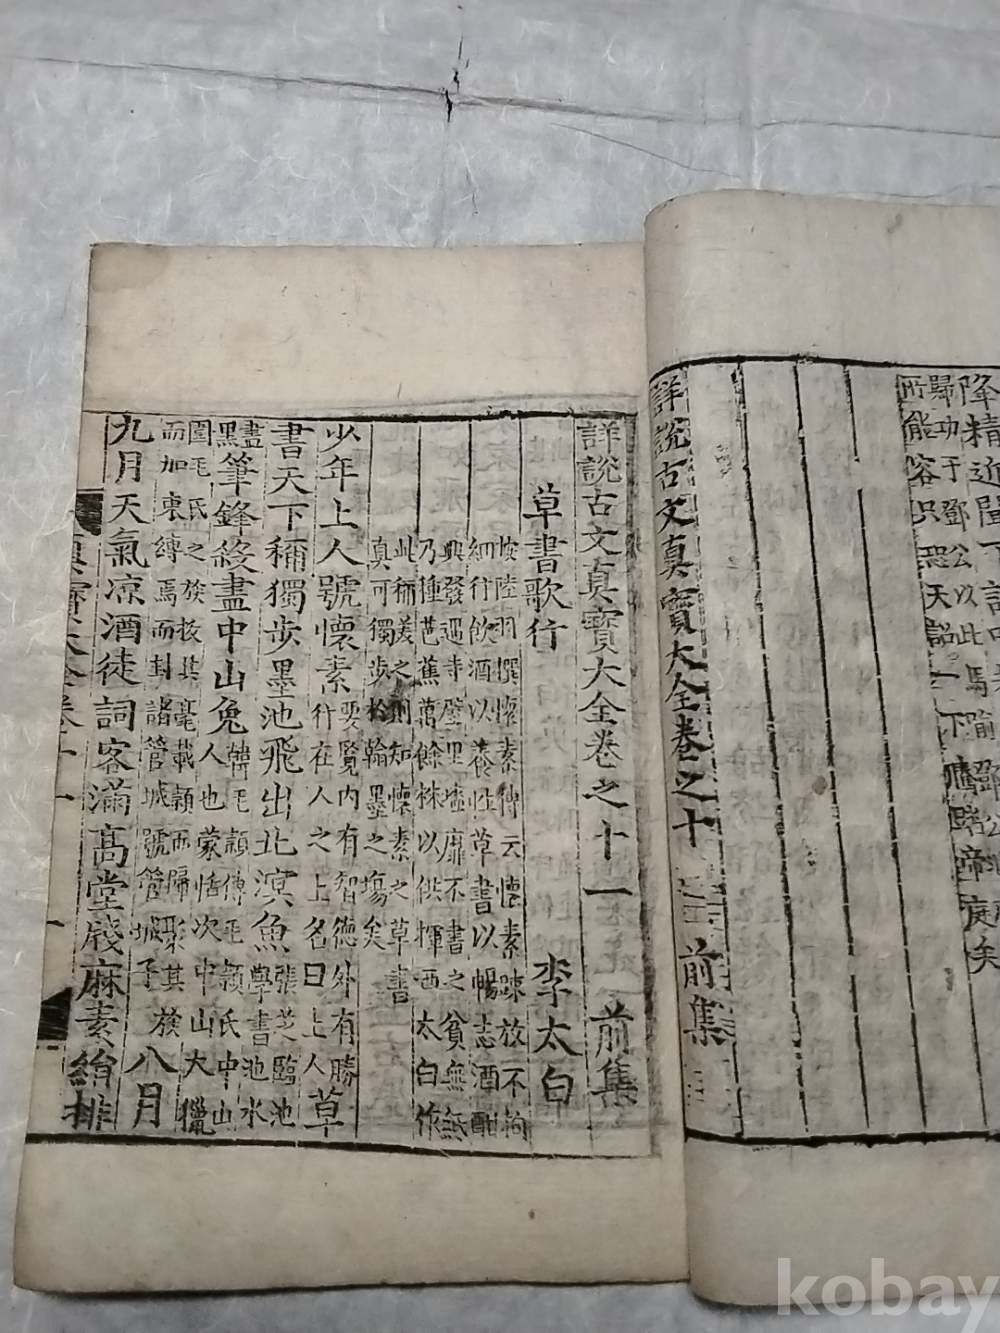 降精近
歸功于鄧公以此馬
所能容只恐天詔一下
詳說古文真寶大全卷之十 前集
詳說古文真寶大全卷之十一 前集
草書歌行 李太白
按陸羽撰懷素傳云懷素踈放不拘
細行飮酒以養性草書以暢志酒酣
興發遇寺壁里墻靡不書之貧無紙
乃種芭蕉萬餘株以供揮洒太白作
此稱美之則知懷素之草書
真可獨步於翰墨之場矣
少年上人號懷素
要覽內有智德外有勝
行在人之上名曰上人
草
書天下稱獨步墨池飛出北溟魚
張芝臨池
學書池水
盡黑
筆鋒殺盡中山兔
韓毛穎傳毛穎氏中山
人也蒙恬次中山大獵
圍毛氏之族拔其毫載穎而歸聚其族
而加束縛焉而封諸管城號管城子
八月
九月天氣凉酒徒詞客滿高堂牋麻素絹排